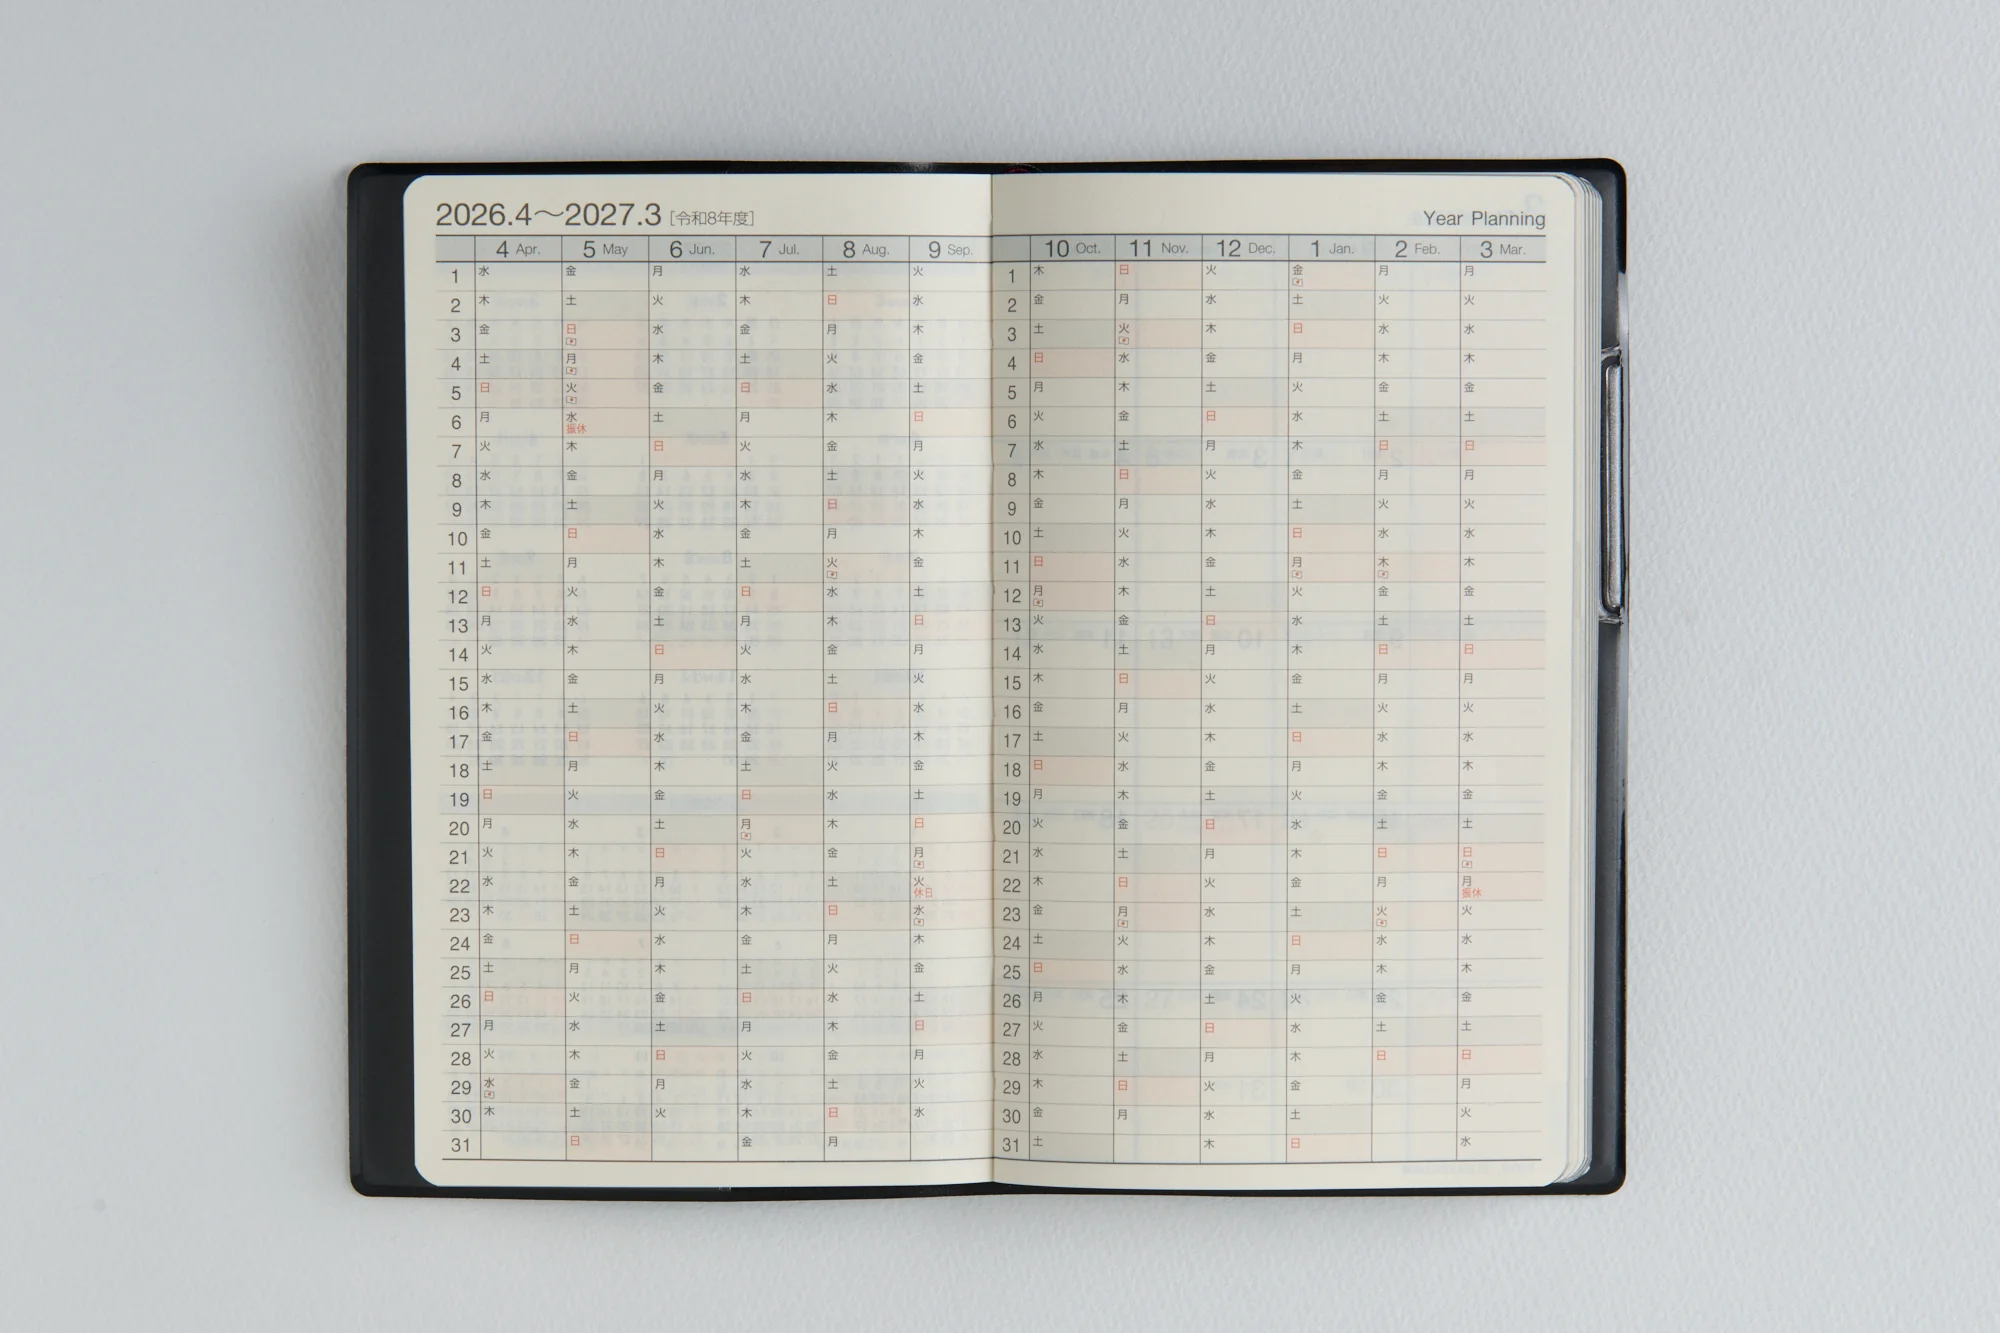 2026.4～2027.3 [令和8年度]
4 Apr. 5 May 6 Jun. 7 Jul. 8 Aug. 9 Sep.
1 水 金 月 水 土 火
2 木 土 火 木 日 水
3 金 日 水 金 月 木
4 土 月 木 土 火 金
5 日 火 金 日 水 土
6 月 水 土 月 木 日
振休
7 火 木 日 火 金 月
8 水 金 月 水 土 火
9 木 土 火 木 日 水
10 金 日 水 金 月 木
11 土 月 木 土 火 金
12 日 火 金 日 水 土
13 月 水 土 月 木 日
14 火 木 日 火 金 月
15 水 金 月 水 土 火
16 木 土 火 木 日 水
17 金 日 水 金 月 木
18 土 月 木 土 火 金
19 日 火 金 日 水 土
20 月 水 土 月 木 日
21 火 木 日 火 金 月
22 水 金 月 水 土 火
休日
23 木 土 火 木 日 水
24 金 日 水 金 月 木
25 土 月 木 土 火 金
26 日 火 金 日 水 土
27 月 水 土 月 木 日
28 火 木 日 火 金 月
29 水 金 月 水 土 火
30 木 土 火 木 日 水
31 日 金 月
Year Planning
10 Oct. 11 Nov. 12 Dec. 1 Jan. 2 Feb. 3 Mar.
1 木 日 火 金 月 月
2 金 月 水 土 火 火
3 土 火 木 日 水 水
4 日 水 金 月 木 木
5 月 木 土 火 金 金
6 火 金 日 水 土 土
7 水 土 月 木 日 日
8 木 日 火 金 月 月
9 金 月 水 土 火 火
10 土 火 木 日 水 水
11 日 水 金 月 木 木
12 月 木 土 火 金 金
13 火 金 日 水 土 土
14 水 土 月 木 日 日
15 木 日 火 金 月 月
16 金 月 水 土 火 火
17 土 火 木 日 水 水
18 日 水 金 月 木 木
19 月 木 土 火 金 金
20 火 金 日 水 土 土
21 水 土 月 木 日 日
22 木 日 火 金 月 月
振休
23 金 月 水 土 火 火
24 土 火 木 日 水 水
25 日 水 金 月 木 木
26 月 木 土 火 金 金
27 火 金 日 水 土 土
28 水 土 月 木 日 日
29 木 日 火 金 月
30 金 月 水 土 火
31 土 木 日 水